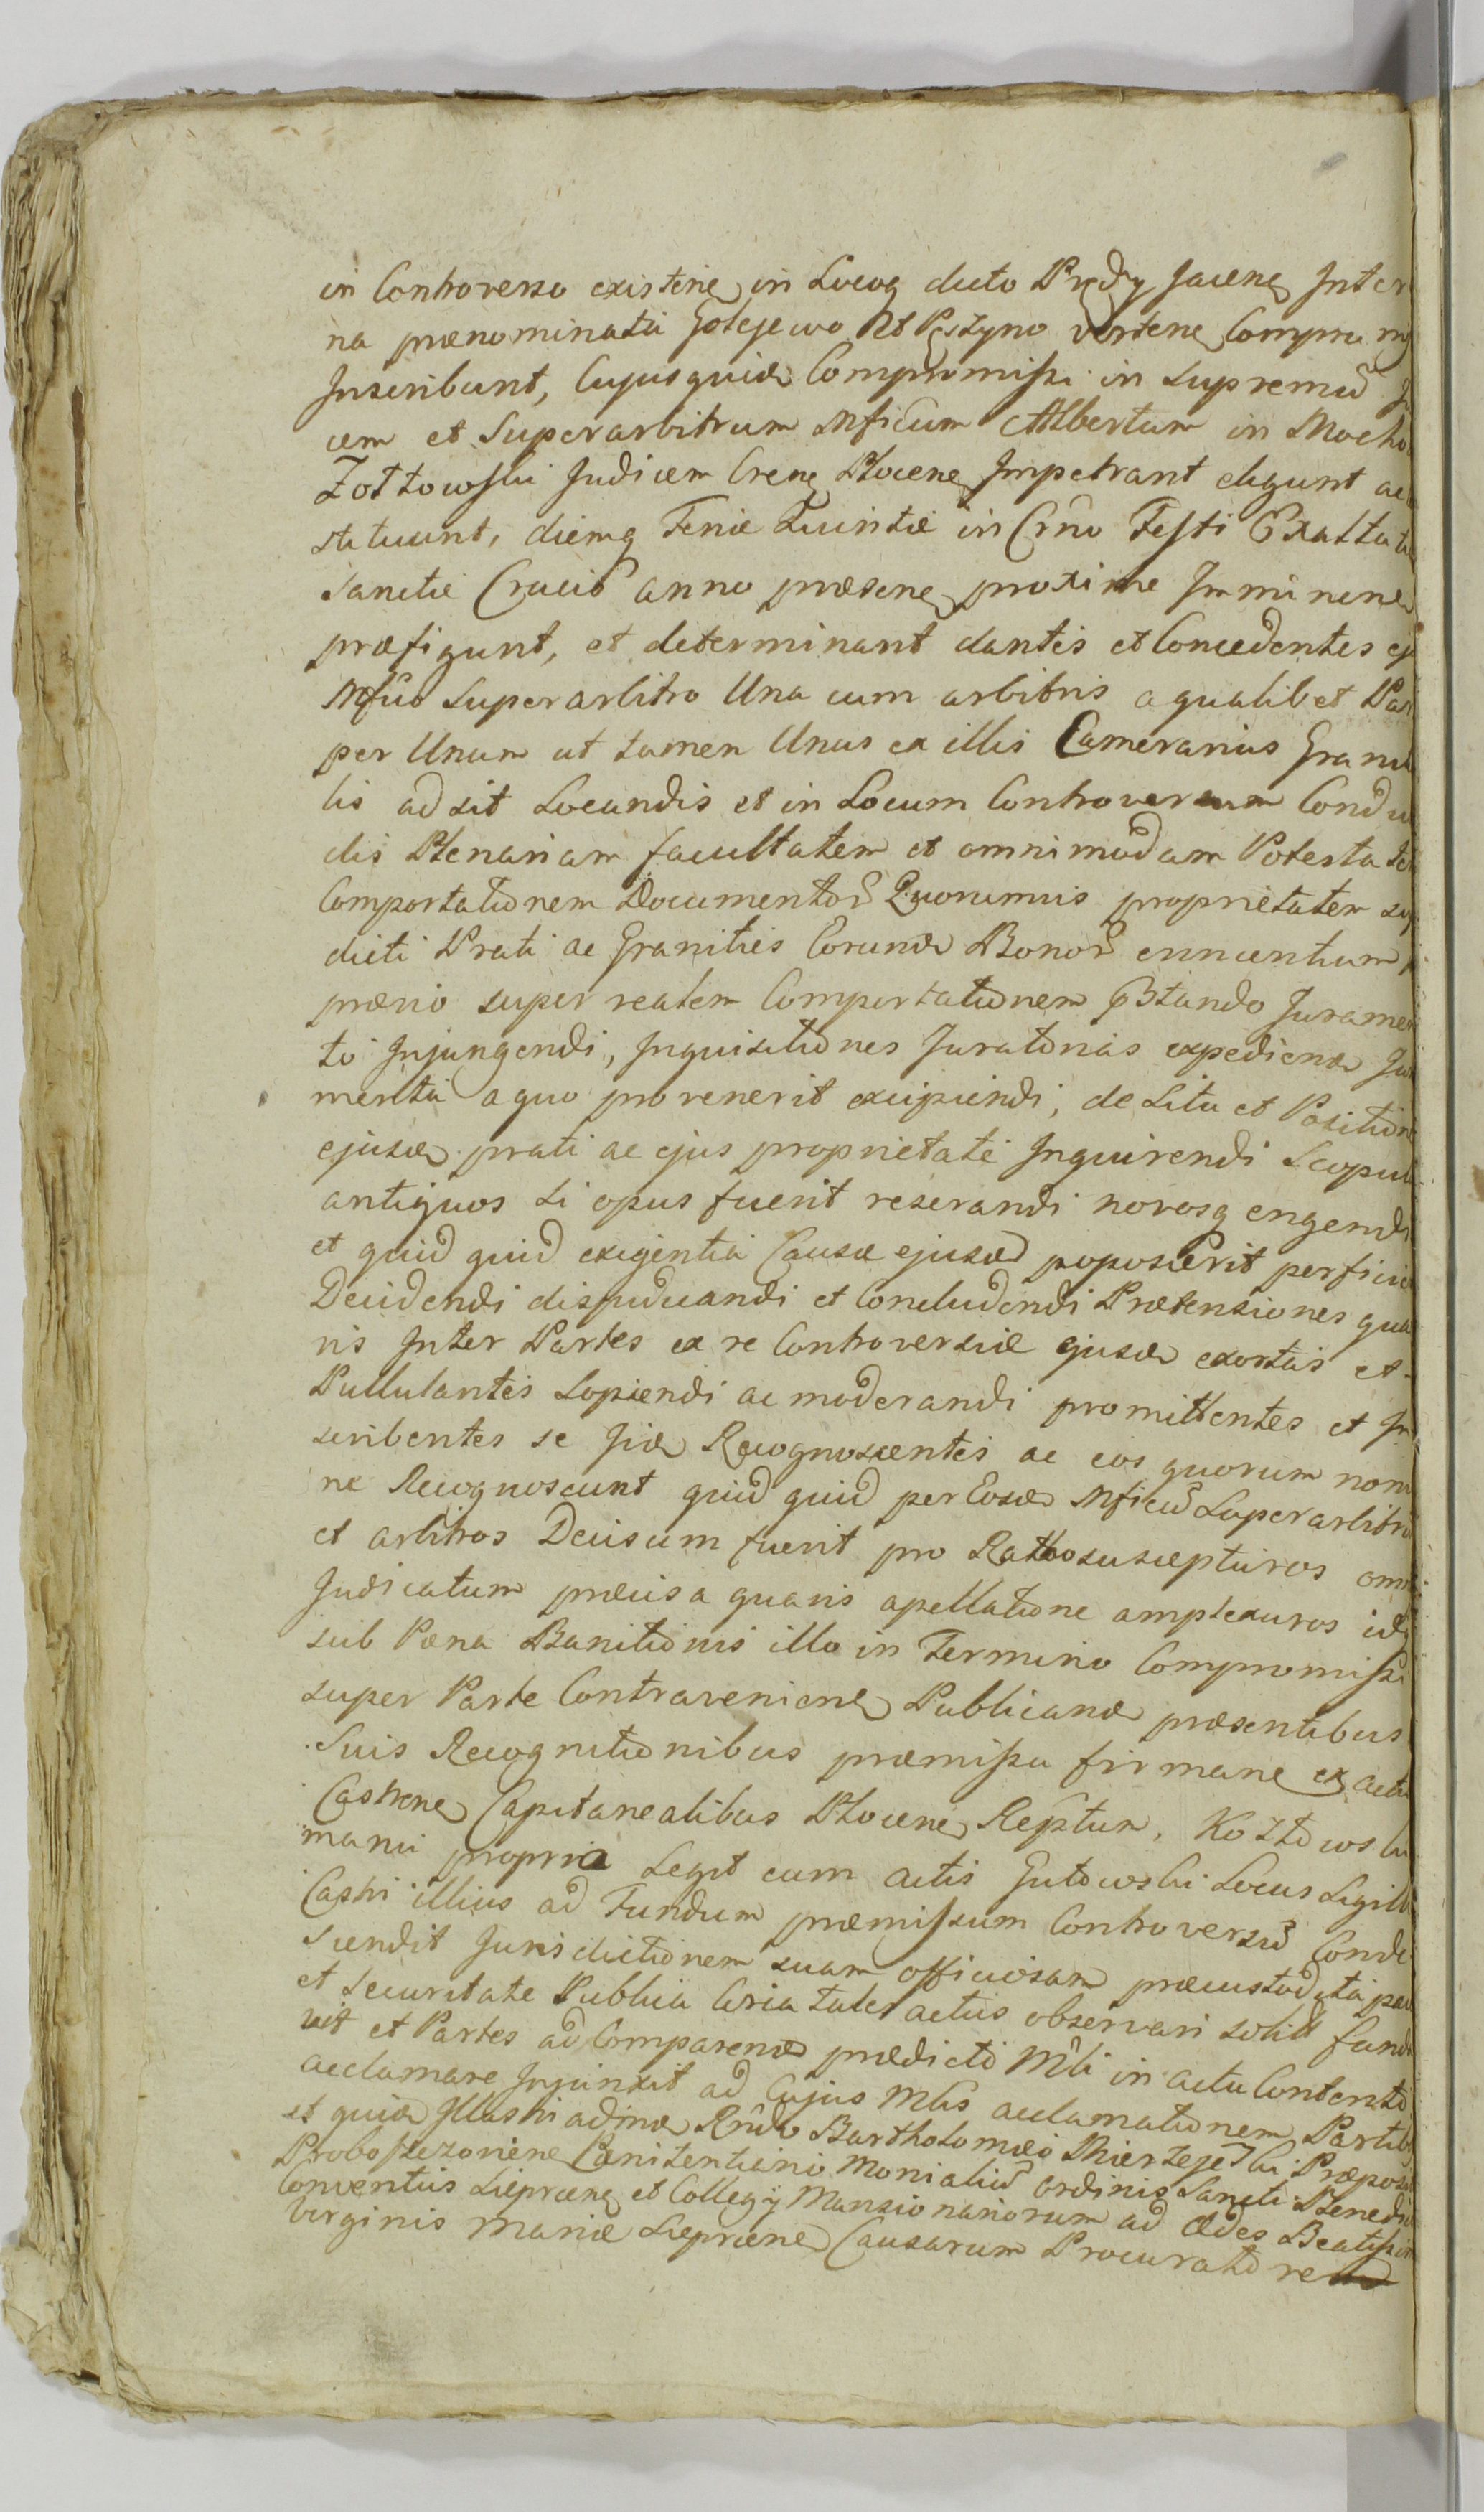 in Controverso existen in Locoq dicto Prędy Jacen Inter
na prænominata Golejewo et Pęszyno verten Comprom
Inscribunt, Cujusquidem Compromissi in Supremu
cem et Superarbitrum Mficum Albertum in Mocho
Zołtowski Judicem Cren Plocen Impetrant eligunt ac
statuunt, diemq Feriæ Quintæ in Crno Festi Exaltat
Sanctæ Crucis anno præsen proxime Imminen
præfigunt, et determinant dantes et Concedentes ej
Mfico Superarbitro Una cum arbitris a qualibet Par
per Unum ut tamen Unus ex illis Camerarius Grani
lis adsit Locandis et in Locum Controversum Condu
dis Plenariam facultatem et omnimodam Potestate
Comportationem Documentor Quorumvis proprietatem
dicti Prati ac Granities Eorund Bonor
prævio super realem Comportationem Jurame
to Injungendi, Inquisitiones Juratorias expedien
menta a quo provenerit excipiendi, de Situ et Position
ejusd prati ac ejus proprietate Inquirendi Scopul
antiquos si opus fuerit reserandi novosq erigendi
et quid quid exigentia Causæ ejusd poposcerit perficie
Decidendi dispudicandi et Concludendi Prætensiones qua
vis Inter Partes ex re Controversiæ ejusd exortas et
Pullulantes Sopiendi ac moderandi promittentes et In
scribentes se Recognoscentes ac eos quorum nomi
ne Recognoscunt quid quid per Eosd Mficu Superarbitru
et arbitros Decisum fuerit pro Ratto suscepturos omn
Judicatum præcisa quavis apellatione amplexuros id
sub Pæna Banitionis illo in Termino Compromissi
super Parte Contravenien Publicand præsentibus
Suis Recognitionibus præmissa firman ex actis
Castren Capitanealibus Plocen Reptum. Kozłowski
manu propria Legit cum actis Gutowski Locus Sigilli
Castri illius ad Fundum præmissum Controversu Conde
scendit Jurisdictionem suam officiosam præcustodita pac
et Securitate Publica actus observari solit fund
vit et Partes ad Comparend prædicto in actu Contento
acclamare Injunxit ad Cujus acclamationem Partib
et quid Illustri Rndo Bartholomæo Præposit
Poenitentiario Monialiu ordinis Sancti Benedic
Conventus Sieprcen et Collegÿ Mansionariorum ad Ædes Beatissi
Virginis Mariæ Sieprcen Causarum Procuratore